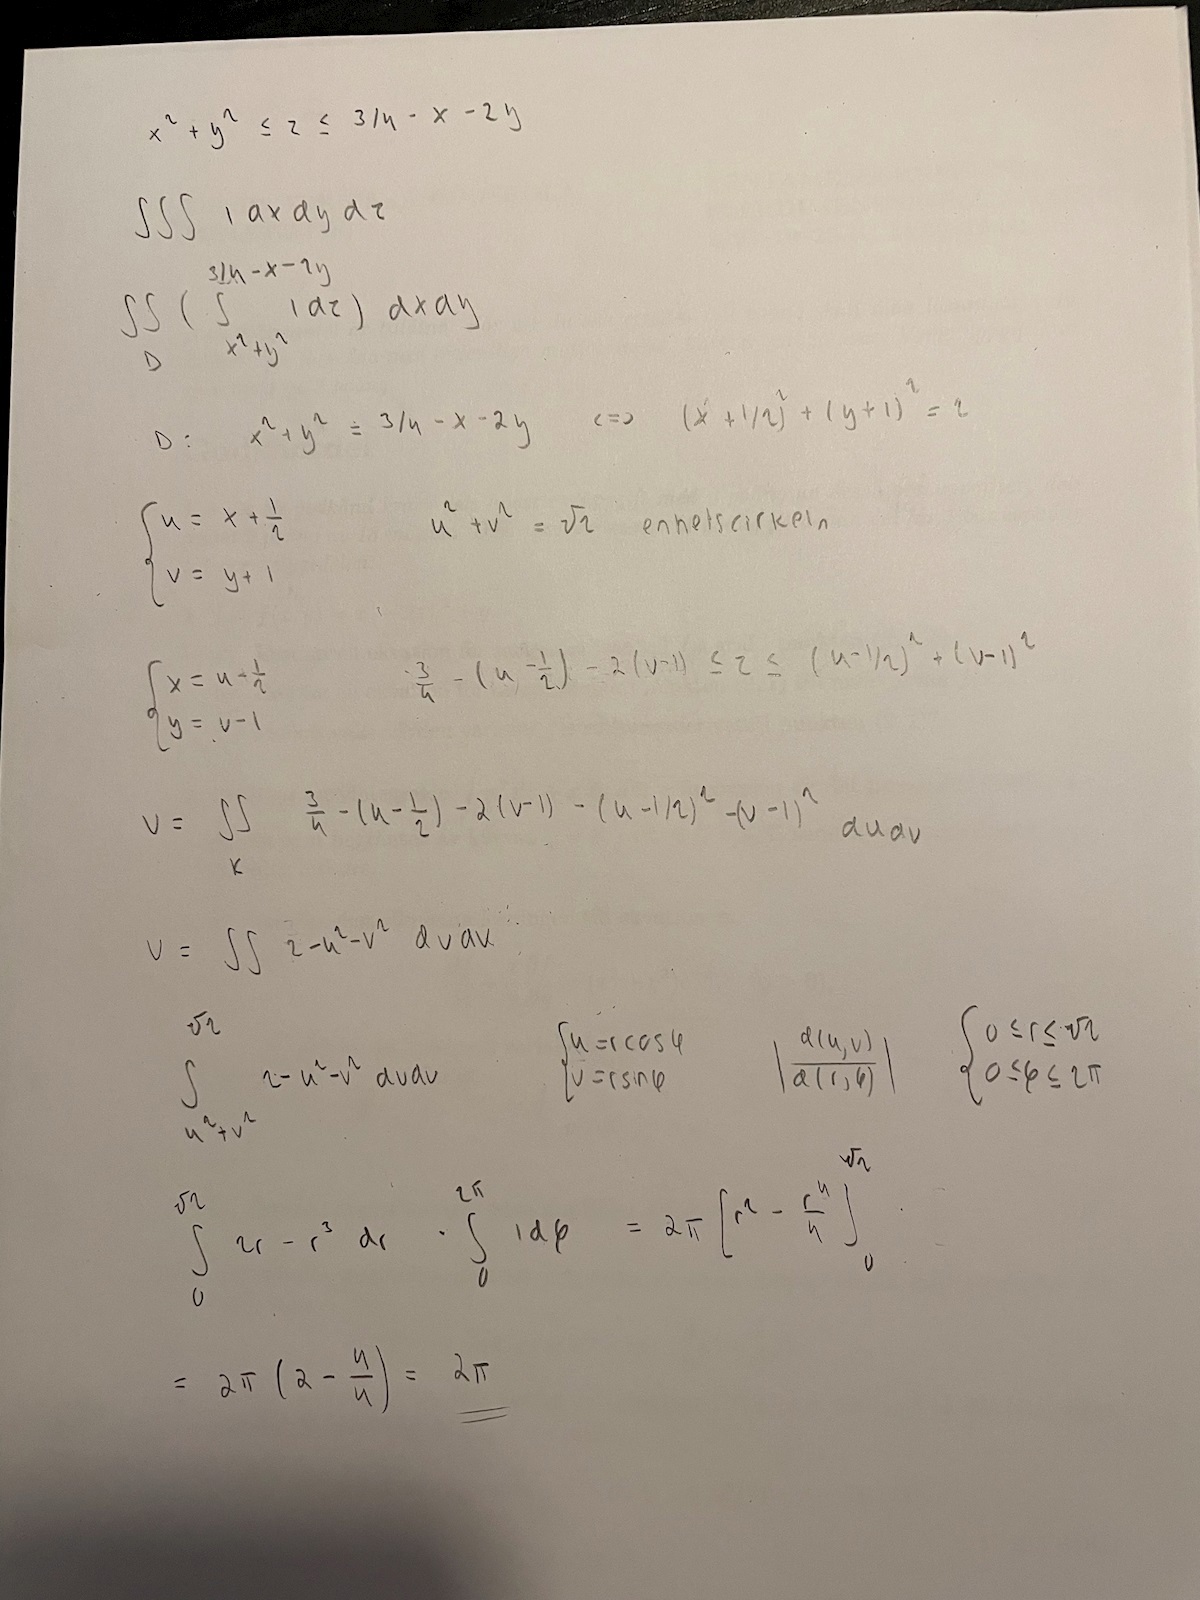 x² + y² ≤ z ≤ 3/4 - x - 2y
∫∫∫ 1 dx dy dz
∫∫_D ( ∫_{x²+y²}^{3/4-x-2y} 1 dz ) dx dy
D: x² + y² = 3/4 - x - 2y <=> (x + 1/2)² + (y+1)² = 2
{ u = x + 1/2 u² + v² = √2 enhetscirkeln
v = y + 1
{ x = u - 1/2 3/4 - (u - 1/2) - 2(v-1) ≤ z ≤ (u-1/2)² + (v-1)²
y = v - 1
V = ∫∫_K 3/4 - (u - 1/2) - 2(v-1) - (u - 1/2)² - (v-1)² du dv
V = ∫∫ 2 - u² - v² dv du
∫_{u²+v²}^{√2} 2 - u² - v² du dv { u = r cos φ v = r sin φ | d(u,v) / d(r,φ) | { 0 ≤ r ≤ √2 0 ≤ φ ≤ 2π
∫_0^{√2} 2r - r³ dr · ∫_0^{2π} 1 dφ = 2π [ r² - r⁴/4 ]_0^{√2}
= 2π (2 - 4/4) = 2π